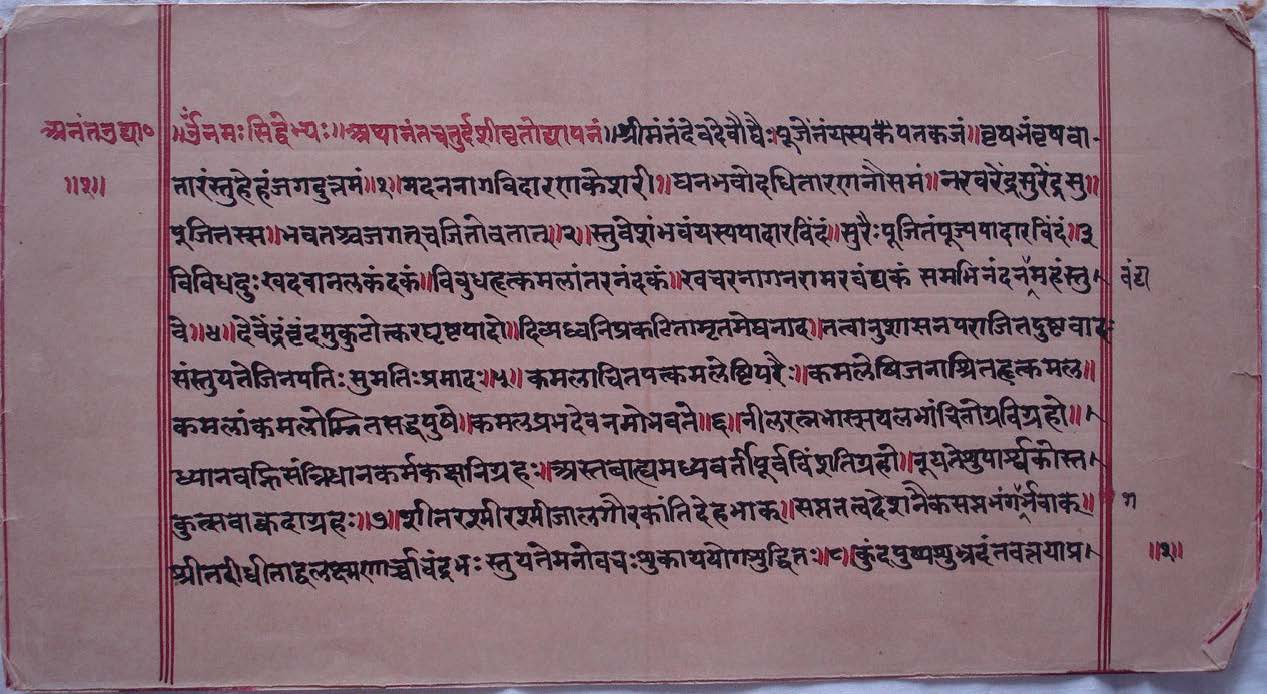 अनंतव्रद्या० ॥ॐनमःसिद्धेभ्यः॥अथानंतचतुर्दशीव्रतोद्यापनं॥श्रीमंतंदेवदेवौघैःपूजेंतंयस्यकंपतकजं॥वृषभंवृषवा-
॥१॥ तारंस्तुहेहंजगदुत्तमं॥१॥मदननागविदारणकेशरी॥घनभवोदधितारणनौसमं॥नरवरेंद्रसुरेंद्रसु॥
पूजितस्स॥भवतश्चजगत्वजितोवतात्॥२॥स्तुवेशंभवंयस्यपादारविंदं॥सुरैःपूजितंपूज्यपादारविंदं॥३
विविधदुःखदवानलकंदकं॥विबुधहृत्कमलांतरनंदकं॥खचरनागनरामरवंद्यकं समभिनंदनमहंस्तु वंद्य
वे॥४॥देवेंद्रवृंदमुकुटोत्करघृष्टपादो॥दिव्यध्वनिप्रकटितामृतमेघनाद॥तत्वानुशासनपराजितदुष्टवादः
संस्तुयतेजिनपतिःसुमतिःप्रमादः॥५॥कमलाचितपत्कमलेष्टिपरैः॥कमलेषिजनाश्रितहृत्कमल॥
कमलांकमलोम्नितसद्वपुषे॥कमलप्रभदेवनमोभवते॥६॥नीलरत्नभास्मयलभांचितोग्रविग्रहो॥
ध्यानवह्निसंन्निधानकर्मकक्षनिग्रहः॥अस्तवाह्यमध्यवर्तीपूर्वविंशतिग्रहो॥नूयतेसुपार्स्वकोस्त
कुत्सवाक्कदाग्रहः॥७॥शीतरश्मीरश्मीजालगौरकांतिदेहभाक्॥सप्ततत्वदेशनैकसप्तभंगर्भवाक्॥ ग
श्रीतदीधीताद्वलक्ष्मणार्च्चचंद्रभःस्तुयतेमनोवचःसुकाययोगसुद्धितः॥८॥कुंदपुष्पशुभ्रदंतवत्नयाप्र ॥१॥